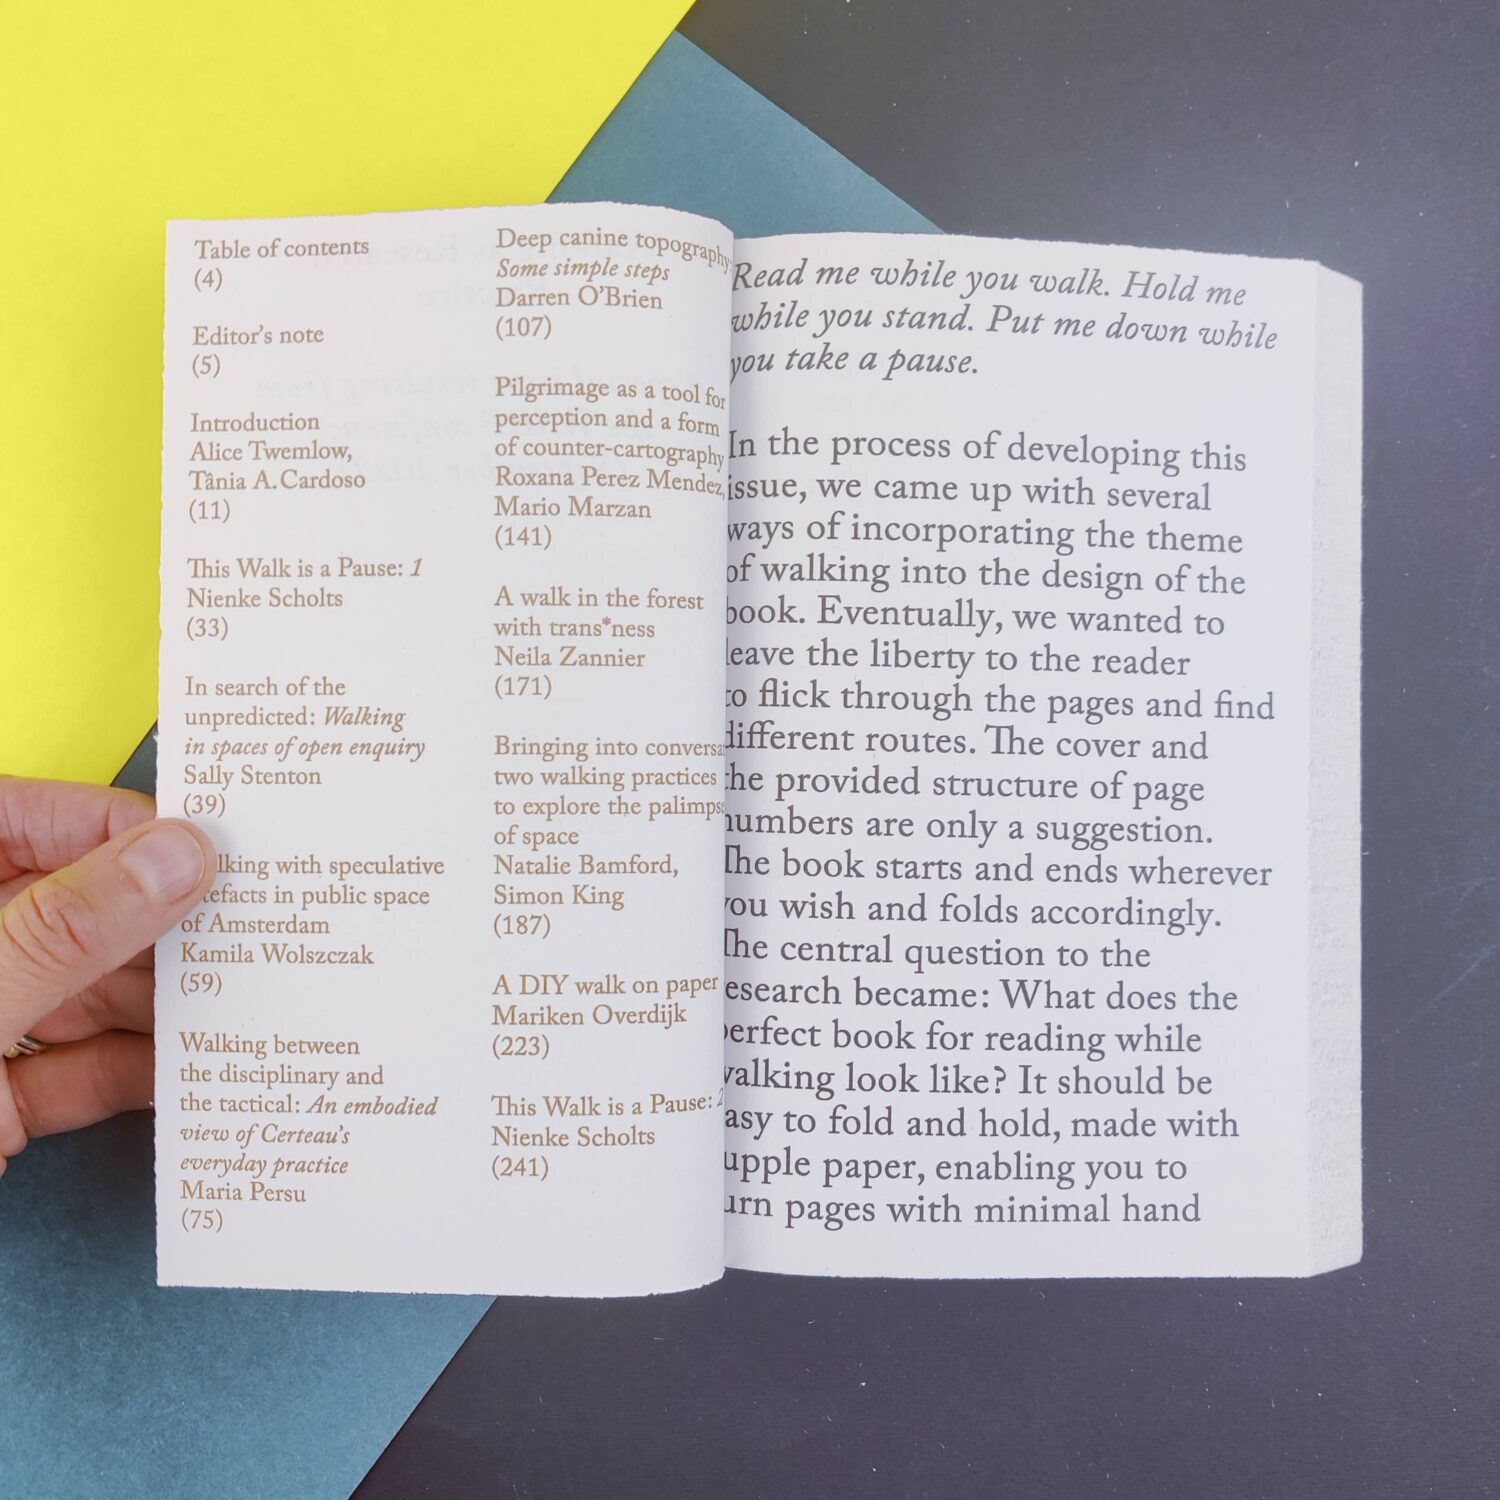 Table of contents
(4)
Editor's note
(5)
Introduction
Alice Twemlow,
Tânia A. Cardoso
(11)
This Walk is a Pause: 1
Nienke Scholts
(33)
In search of the
unpredicted: Walking
in spaces of open enquiry
Sally Stenton
(39)
lking with speculative
tefacts in public space
of Amsterdam
Kamila Wolszczak
(59)
Walking between
the disciplinary and
the tactical: An embodied
view of Certeau's
everyday practice
Maria Persu
(75)
Deep canine topography
Some simple steps
Darren O'Brien
(107)
Pilgrimage as a tool for
perception and a form
of counter-cartography
Roxana Perez Mendez,
Mario Marzan
(141)
A walk in the forest
with trans*ness
Neila Zannier
(171)
Bringing into conversa
two walking practices
to explore the palimpse
of space
Natalie Bamford,
Simon King
(187)
A DIY walk on paper
Mariken Overdijk
(223)
This Walk is a Pause: 2
Nienke Scholts
(241)
Read me while you walk. Hold me
while you stand. Put me down while
you take a pause.
In the process of developing this
issue, we came up with several
ways of incorporating the theme
of walking into the design of the
book. Eventually, we wanted to
leave the liberty to the reader
to flick through the pages and find
different routes. The cover and
the provided structure of page
numbers are only a suggestion.
The book starts and ends wherever
you wish and folds accordingly.
The central question to the
esearch became: What does the
perfect book for reading while
walking look like? It should be
asy to fold and hold, made with
upple paper, enabling you to
urn pages with minimal hand